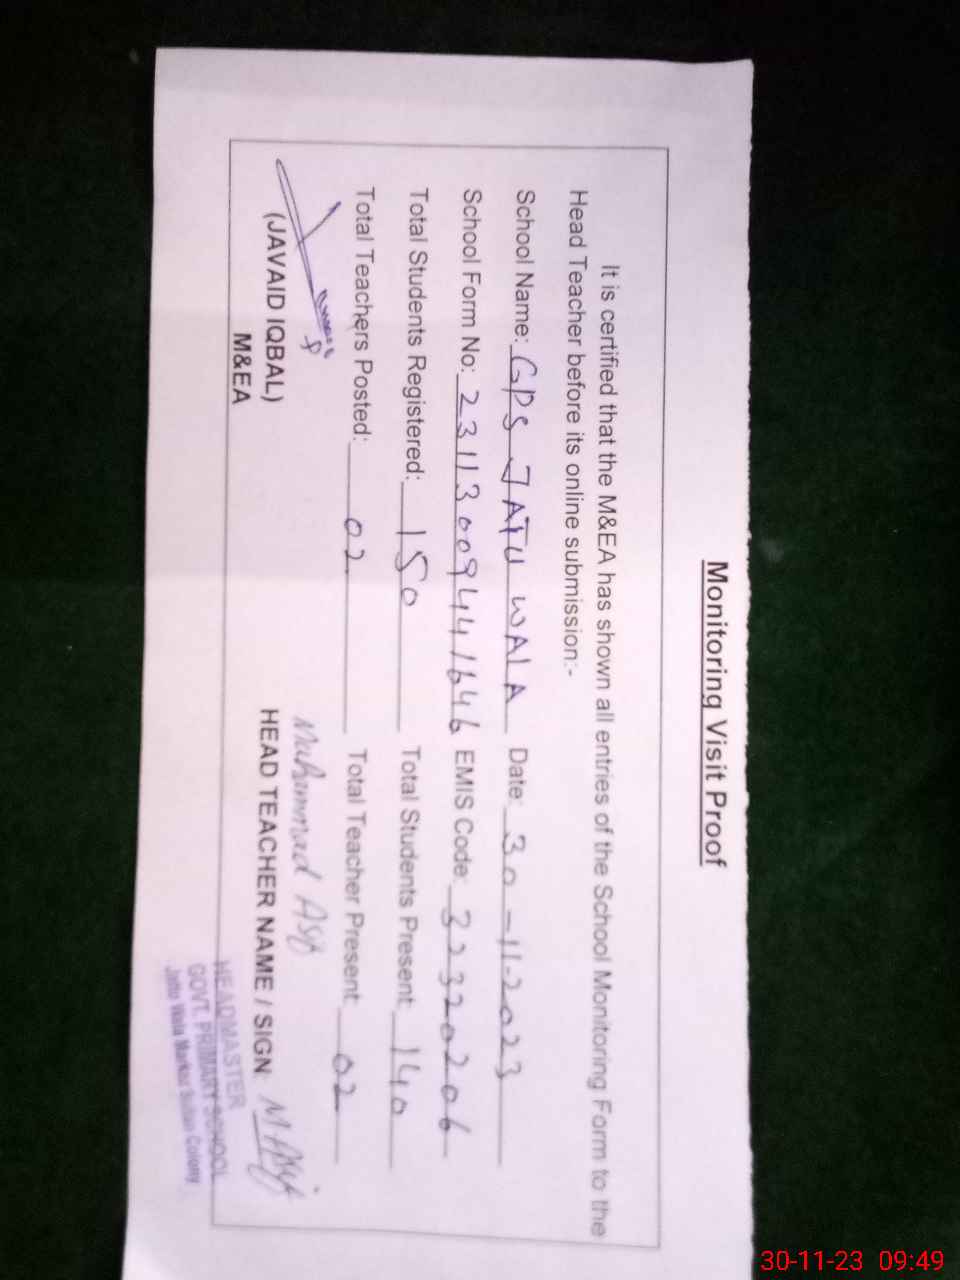 Monitoring Visit Proof
It is certified that the M&EA has shown all entries of the School Monitoring Form to the
Head Teacher before its online submission:-
School Name: GPS JATU WALA Date: 30-11-2023
School Form No: 23113009441646 EMIS Code: 32320206
Total Students Registered: 150 Total Students Present: 140
Total Teachers Posted: 02 Total Teacher Present: 02
Muhammad Asif
(JAVAID IQBAL) HEAD TEACHER NAME / SIGN: M Asif
M&EA
HEADMASTER
GOVT. PRIMARY SCHOOL
Wala Markaz Colony
30-11-23 09:49